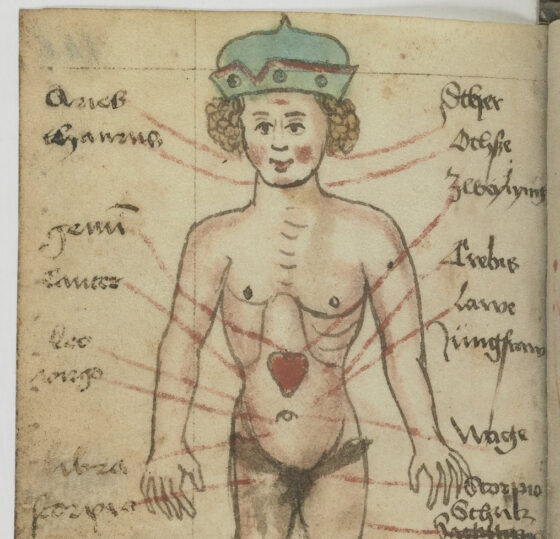 Aries
Thaurus
gemī
Cancer
leo
virgo
libra
scorpio
Sther
Ochsze
Zwyling
Krebis
lawe
Jungfraw
Wage
Scorpio
Schutz